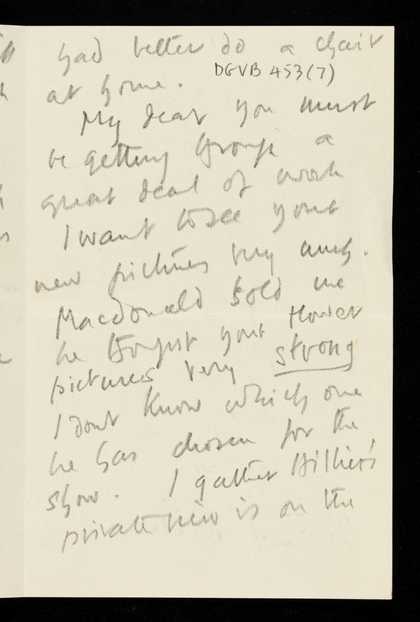 had better do a chair
DGVB 453(7)
at home.
My dear you must
be getting through a
great deal of work
I want to see your
new pictures very much.
Macdonald told me
he thought your flower
pictures very strong
I dont know which one
he has chosen for the
show. I gather Hillier's
private view is on the